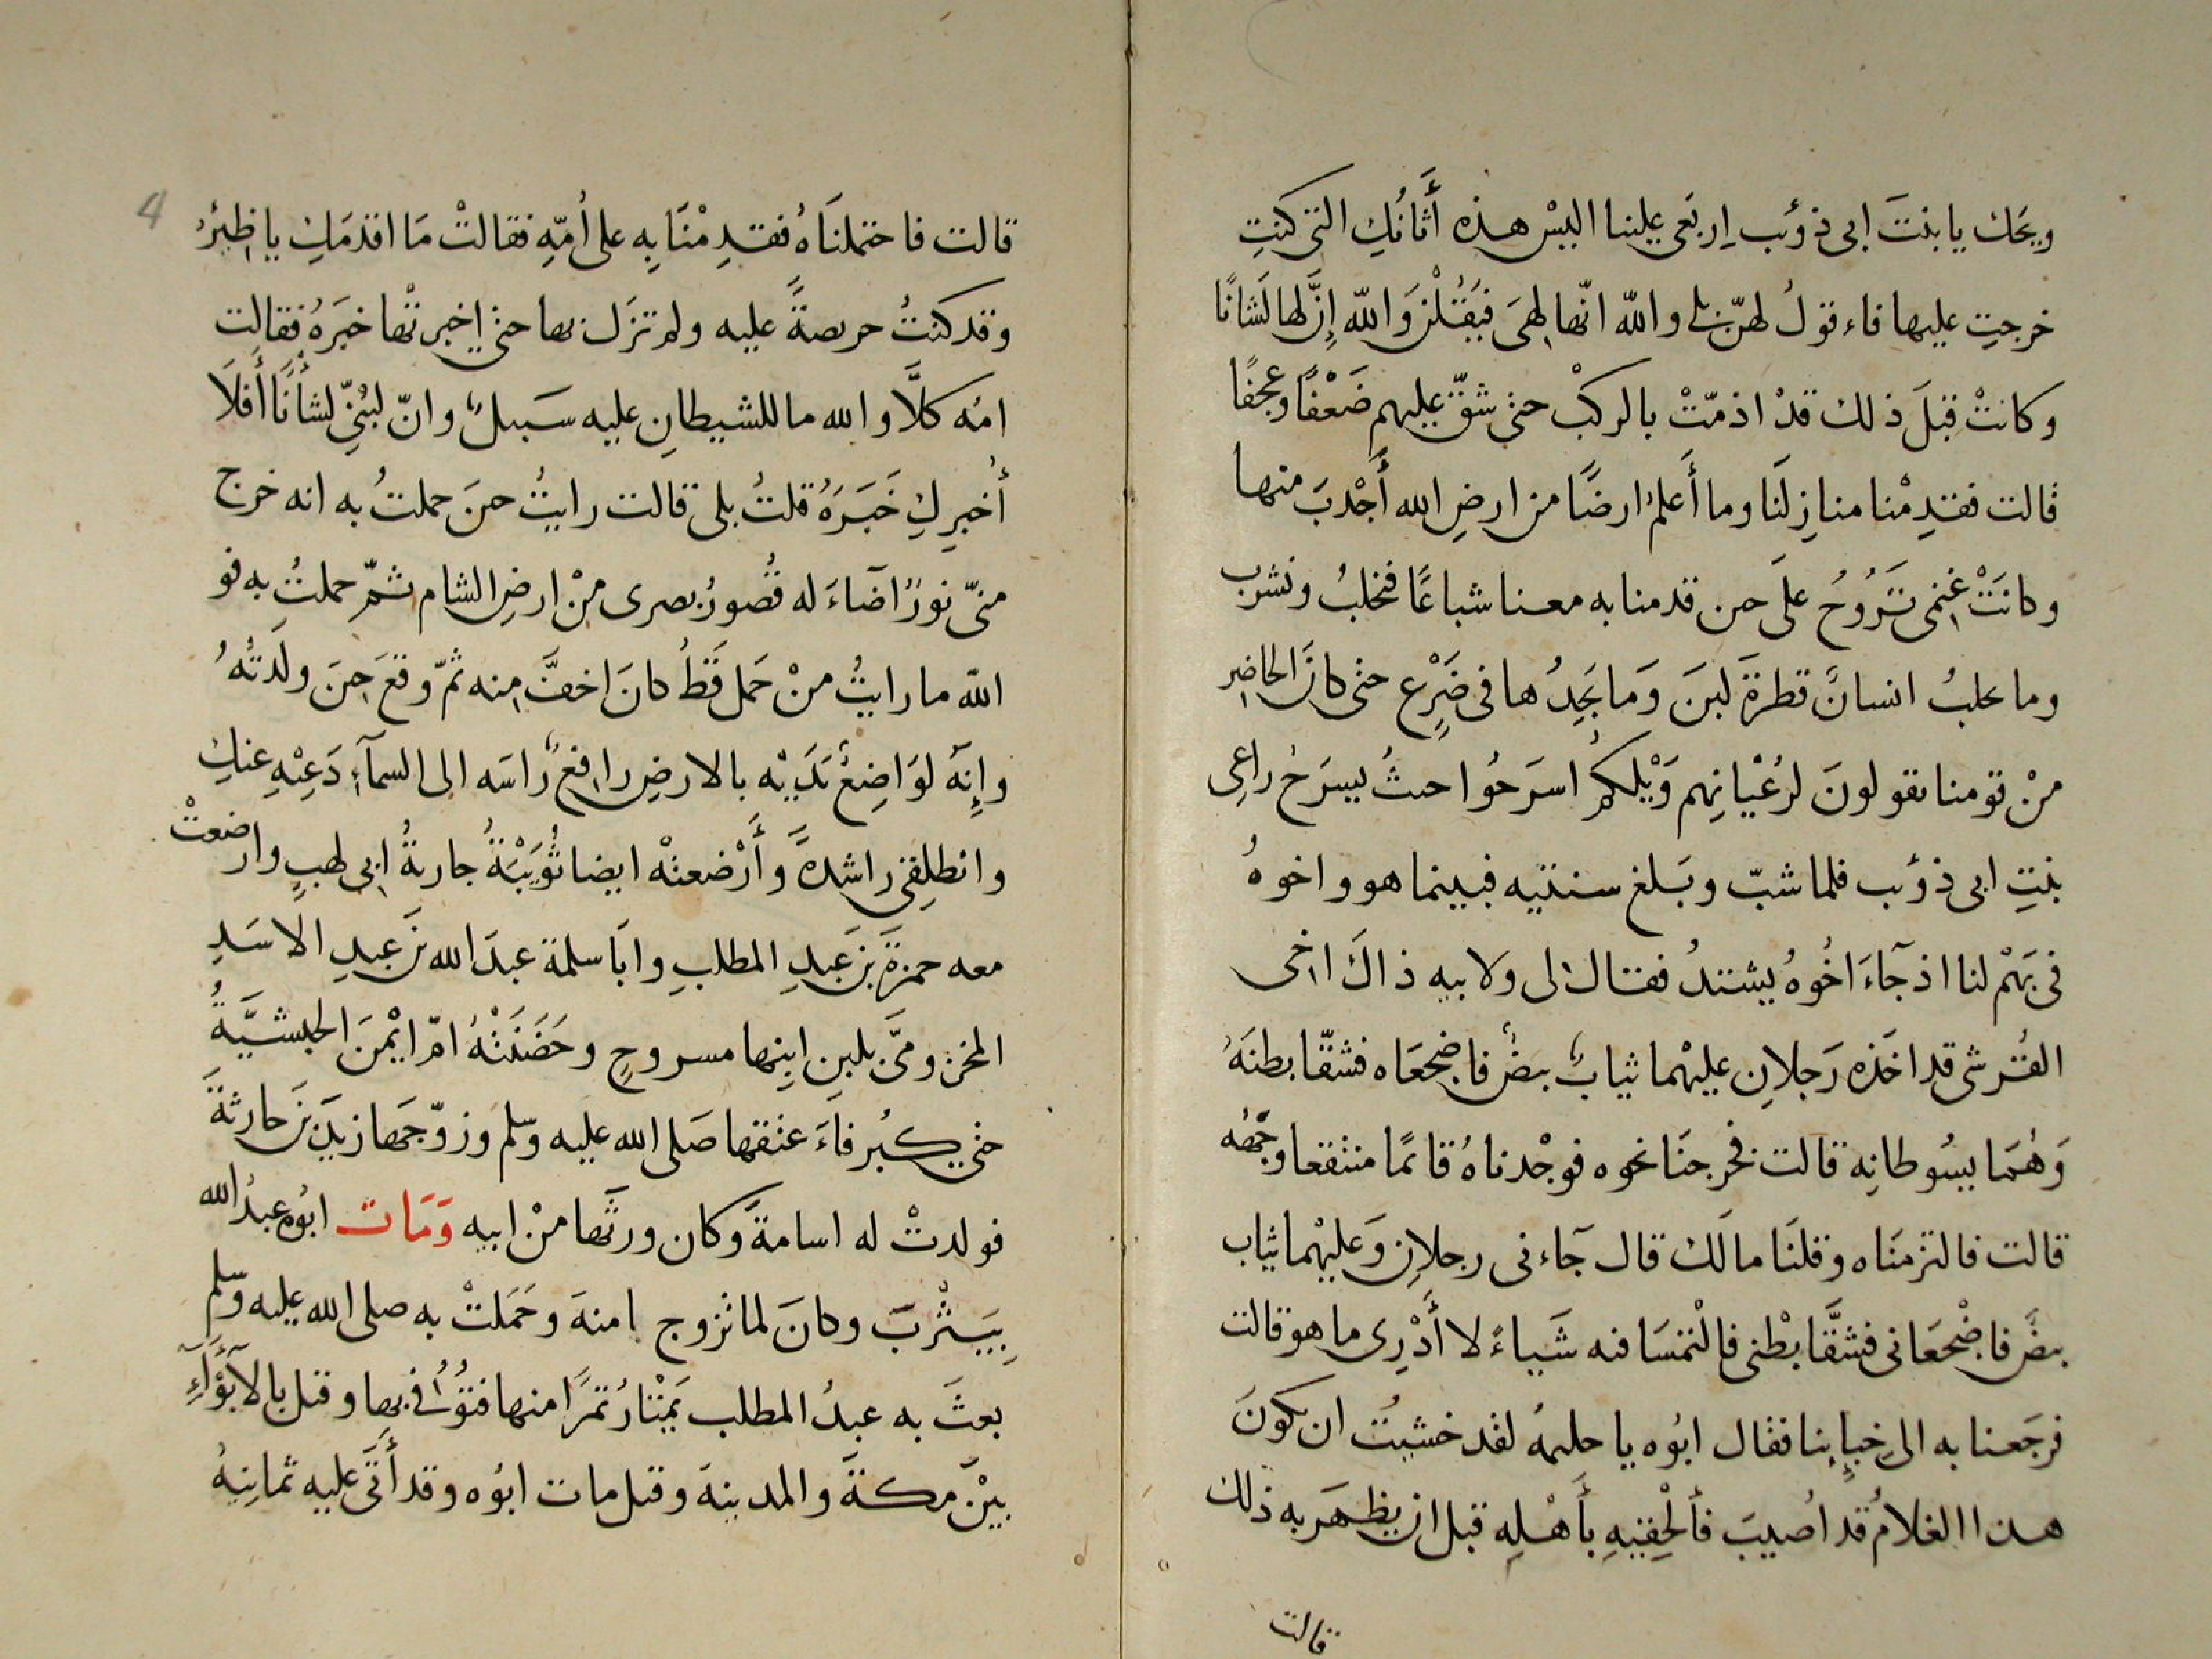 ويحك يا بنتَ ابى ذؤب اِربَعى علينا اليسْ هذه أَتَانُكِ التى كنتِ
خرجتِ عليها فاءقولُ لهنّ بلى واللّه انّها لهِىَ فيَقُلْنَ وَاللّه إِنَّ لها لَشَانًا
وكانتْ قبلَ ذلك قدْ اذمّتْ بالركبْ حتى شقّ عليهم ضَعْفًا وعجفًا
قالت فقدِمْنا منازِلَنَا وما أَعلمُ ارضًا من ارضِ الله أَجْدبَ منها
وكانَتْ غنمى تَرُوحُ علَى حىن قدمنا به معنا شباعًا فنحلبُ ونشرب
وما يحلبُ انسانٌ قطرةَ لبنَ وَما يَجِدُها فى ضَرِع حتى كانَ الحاضِر
منْ قومنا يقولونَ لرُعْيانِهم وَيْلكمُ اسرَحُوا حيثُ يسرَحُ راعِى
بنتِ ابى ذؤب فلما شبّ وبَلغ سنتيه فبينما هو واخوهُ
فى بَهْم لنا اذ جآءَ اخُوهُ يشتدُ فقال لى ولابيه ذاكَ اخى
القُرشى قد اخَذه رَجلانِ عليْهما ثيابٌ بيضٌ فاضجعَاه فشقّا بطنَهُ
وَهُمَا يسُوطانِه قالت فخرجنَا نحوه فوجْدناهُ قائمًا منتقعا وجهُه
قالت فالتزمنَاه وقلنَا مالَك قال جآءنى رجلانِ وَعليْهما ثياب
بيضٌ فاضْجعَانى فشقَّا بطْنى فالْتمسَا فيه شَياءً لا أَدْرِى ما هو قالت
فرجَعنا به الى خِبإِئِنا فقال ابُوه يا حليمةُ لقد خشيتُ ان يكونَ
هذا الغلامُ قد اُصيبَ فأَلْحِقيهِ بأَهْلِهِ قبل ان يظهَر به ذلك
قالت
قالت فاحتملنَاهُ فقدِمْنَا بِه على اُمّهِ فقالتْ مَا اقدَمَكِ يا ظِئرُ
وقد كنتُ حريصةً عليه ولم تزَل بها حتى اخبرتْها خبَرَهُ فقالت
امُه كلَّا والله ما للشيطانِ عليه سَبيلٌ وانّ لبُنىّ لشأْنًا أَفلَا
أُخبرِكِ خَبَرَهُ قلتُ بلى قالت رايتُ حينَ حملتُ به انه خرج
منىّ نورٌ اضَاءَ له قُصورُ بصرى منْ ارضِ الشام ثمّ حملتُ به فو
اللّه ما رايتُ منْ حَمل قَطُ كانَ اخفَّ منه ثمّ وقعَ حينَ ولَدتُهُ
وإِنهَّ لوَاضِعٌ يَدَيْه بالارضِ رافعٌ رَاسَه الى السمآءِ دَعِيْهِ عنكِ
وانطلِقى راشدةً وأَرْضعتْه ايضا ثُوَيْبَةُ جاريةُ ابى لهبٍ وارضعتْ
معه حمزةَ بنَ عَبدِ المطلبِ وابَا سلمة عبدَ الله بنَ عبدِ الاسَدِ
المخزومىَّ بلبنِ ابنِها مسروحٍ وحَضَنَتْهُ امّ ايْمنَ الحبشيَّةُ
حتى كبُر فاءَعتقها صَلى الله عليه وسّلم وزوّجَها زيدَ بنَ حارثةَ
فولدتْ له اسامةَ وكان ورثَها منْ ابيه وَمَات ابُوه عبدُ الله
بِيَثْربَ وكانَ لما تزوج امنةَ وحَمَلتْ به صلى الله عليه وسّلم
بعثَ به عبدُ المطلب يَمْتارُ تمرًا منها فتُوُفى بِها وقيل بالأَبوَآءِ
بيْنَ مكةَ والمدينة وقيل مات ابُوه وقد أَتَى عليه ثمانِيةُ
4